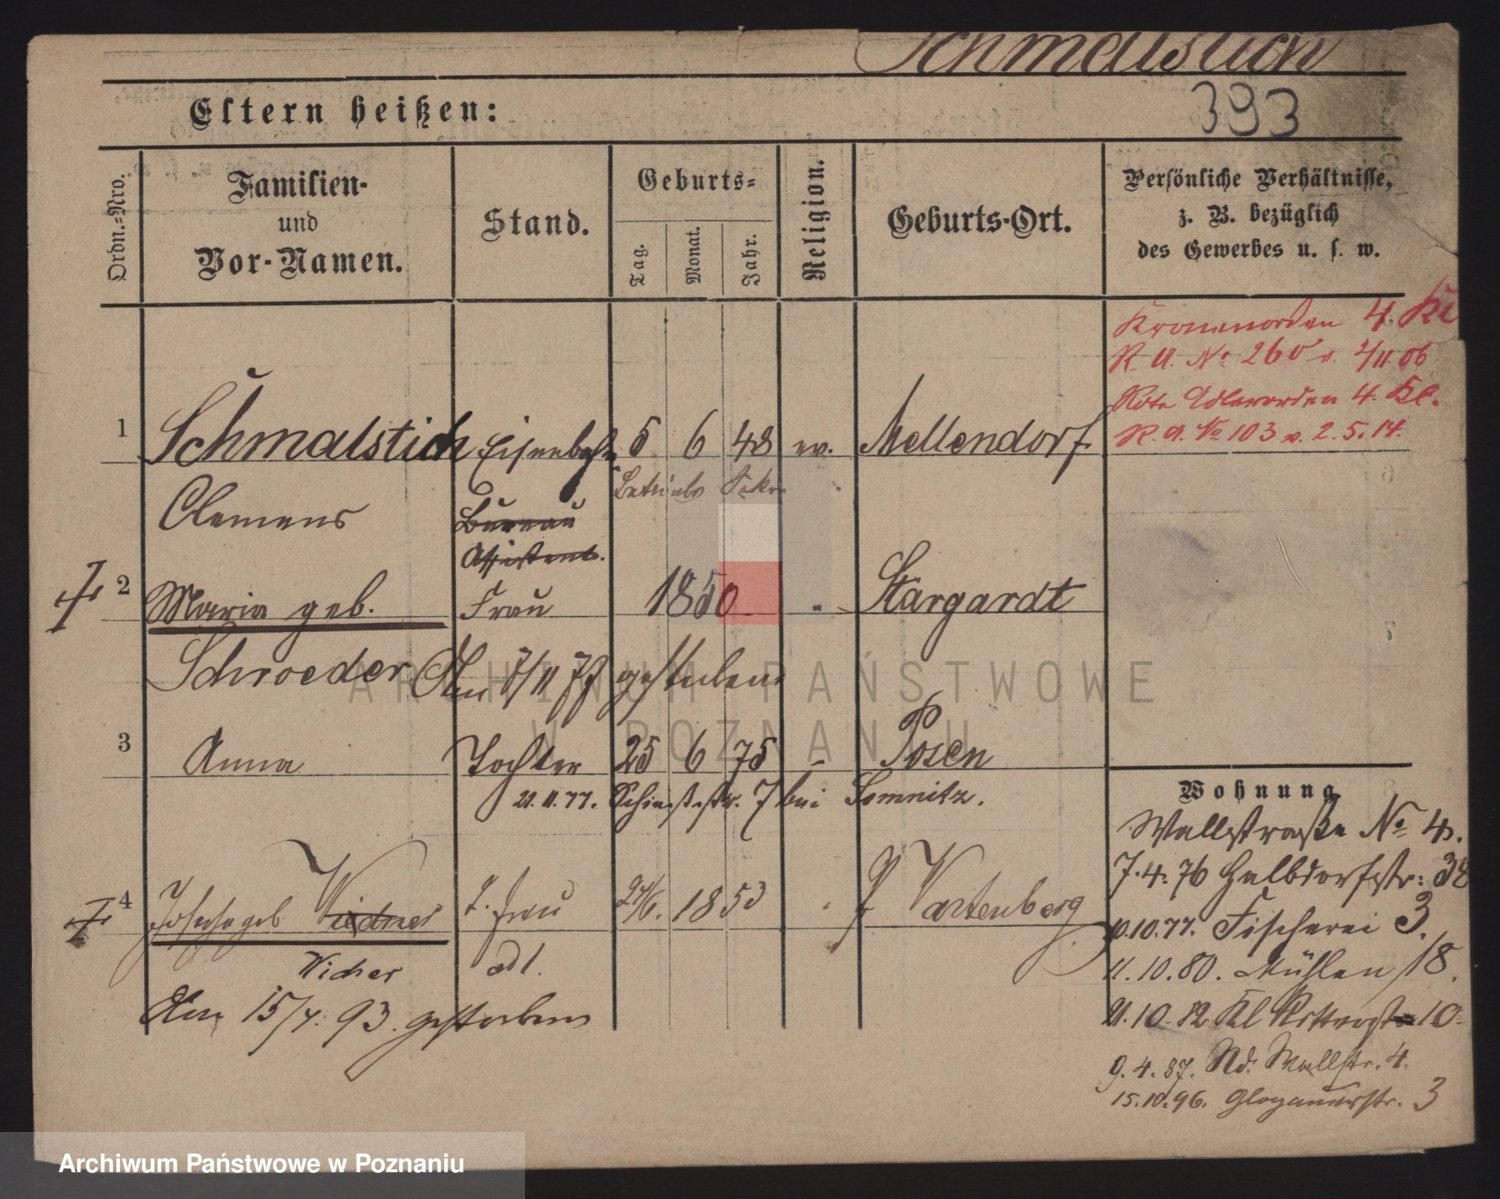 Schmalstich
393
Eltern heißen:
Ordn.-Nro.
Familien-
und
Vor-Namen.
Stand.
Geburts-
Tag.
Monat.
Jahr.
Religion.
Geburts-Ort.
Persönliche Verhältnisse,
z. B. bezüglich
des Gewerbes u. s. w.
Kronenorden 4. Kl
R. A. No 260 v. 2/11.06
Rote Adlerorden 4. Kl.
R. A. No 103 v. 2.5.14.
1 Schmalstich Eisenbahn 5 6 48 ev. Mellendorf
Betriebs Sekr.
Clemens Bureau
Assistent.
2 Maria geb. Frau 1850 Stargardt
Schroeder Am 7/11 77 gestorben
3 Anna Tochter 25 6 75 Posen
21.11.77. Schießstr. 7 bei Somnitz.
4 Josepha geb Wiedner 2. Frau 24/6. 1853 P. Wartenberg
Wicher adl.
Am 15/7. 93. gestorben
Wohnung
Wallstraße No 4.
7.4.76 Halbdorfstr: 38
10.10.77. Fischerei 3.
11.10.80. Mühlen 18.
11.10.82 Kl Ritterst 10
9.4.87. Nd. Wallstr. 4.
15.10.96. Glogauerstr. 3
ARCHIWUM PAŃSTWOWE
W POZNANIU
Archiwum Państwowe w Poznaniu